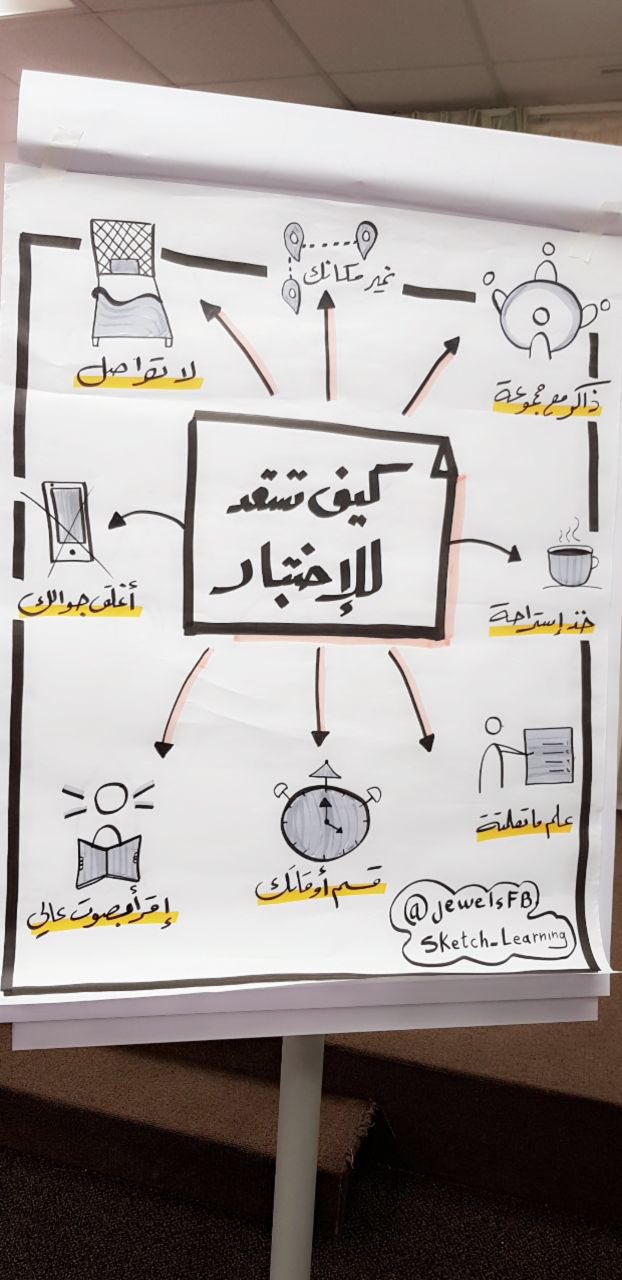 كيف تستعد
للإختبار
ذاكر مع مجموعة
غير مكانك
لا تواصل
أغلق جوالك
خذ إستراحة
علم ما تعلمتة
قسم أوقاتك
إقرأ بصوت عالي
@jewelsFB
Sketch_Learning